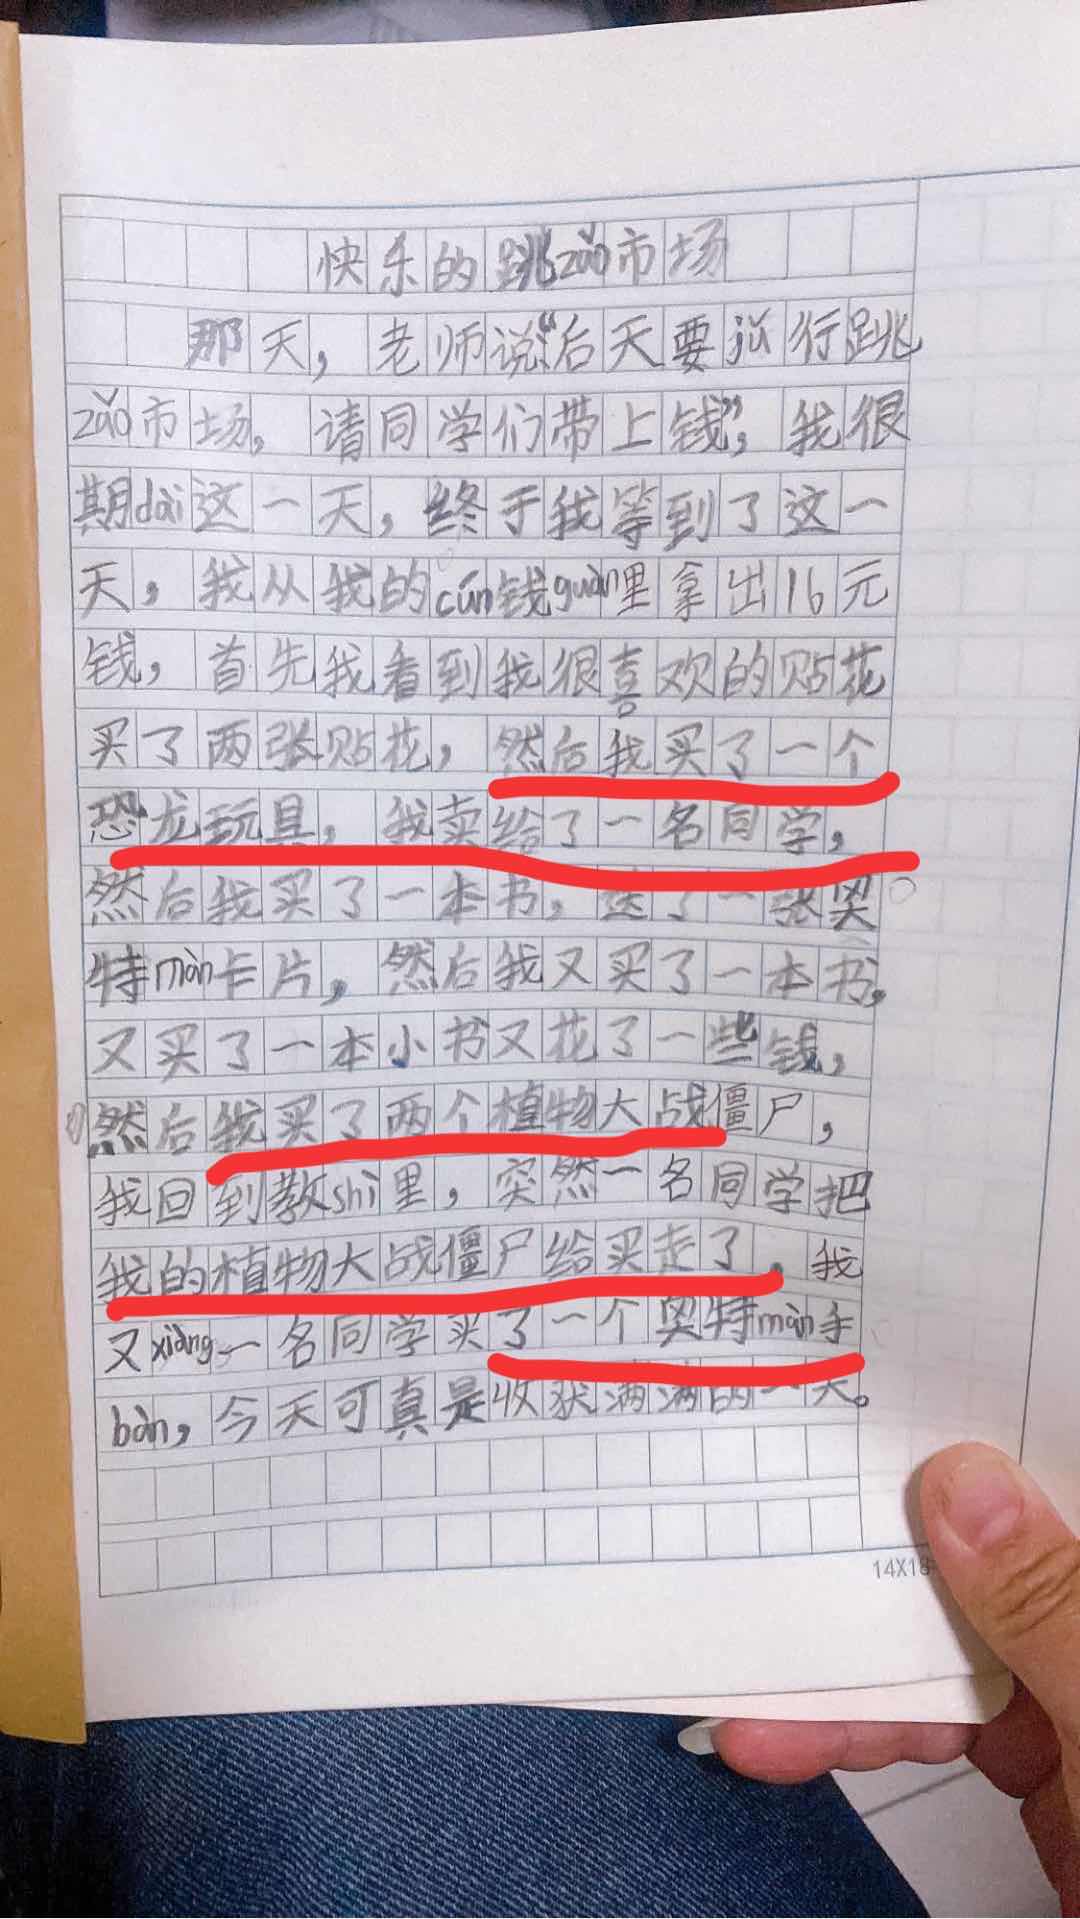 快乐的跳zǎo市场
那天，老师说：“后天要jǔ行跳
zǎo市场，请同学们带上钱”，我很
期dài这一天，终于我等到了这一
天，我从我的cún钱guàn里拿出16元
钱，首先我看到我很喜欢的贴花
买了两张贴花，然后我买了一个
恐龙玩具，我卖给了一名同学，
然后我买了一本书，送了一张奥
特màn卡片，然后我又买了一本书，
又买了一本小书又花了一些钱，
然后我买了两个植物大战僵尸，
我回到教shì里，突然一名同学把
我的植物大战僵尸给买走了。我
又xiàng一名同学买了一个奥特màn手
bàn，今天可真是收获满满的一天。
14X18